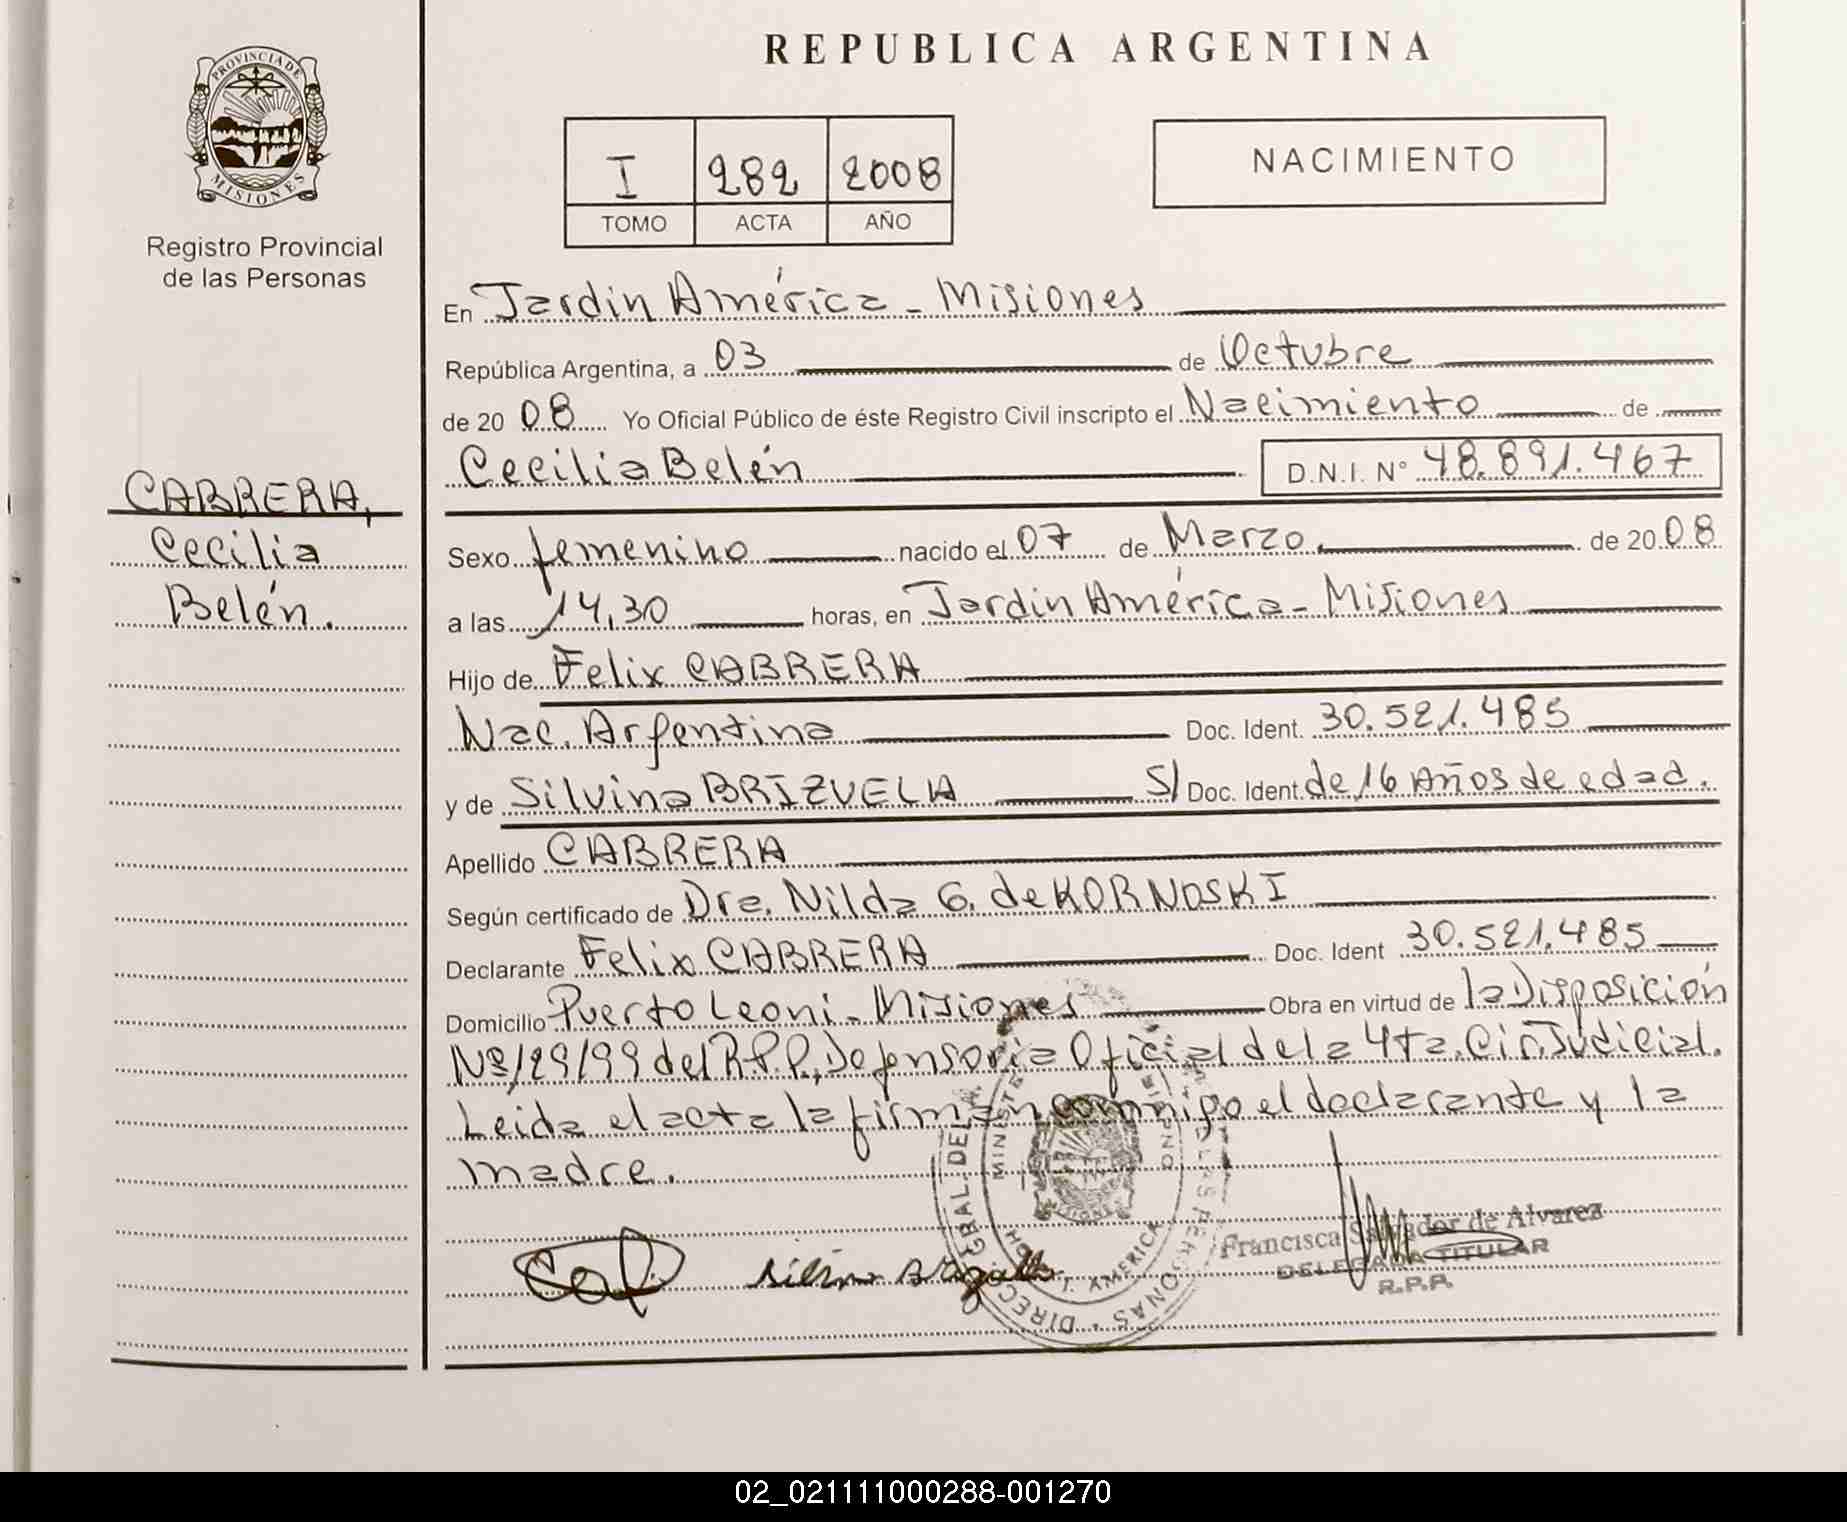 REPUBLICA ARGENTINA
PROVINCIA DE
MISIONES
Registro Provincial
de las Personas
I 282 2008
TOMO ACTA AÑO
NACIMIENTO
En Jardín América - Misiones
República Argentina, a 03 de Octubre
de 2008 Yo Oficial Público de éste Registro Civil inscripto el Nacimiento de
Cecilia Belén D.N.I. N° 48.891.467
CABRERA,
Cecilia
Belén.
Sexo femenino nacido el 07 de Marzo de 2008
a las 14,30 horas, en Jardin América - Misiones
Hijo de Felix CABRERA
Nac. Argentina Doc. Ident. 30.521.485
y de Silvina BRIZUELA S/ Doc. Ident. de 16 Años de edad.
Apellido CABRERA
Según certificado de Dra. Nilda G. de KORNOSKI
Declarante Felix CABRERA Doc. Ident 30.521.485
Domicilio Puerto Leoni - Misiones Obra en virtud de la Disposición
Nº/29/99 del R.P.P., Defensoria Oficial de la 4ta. Cir. Judicial.
Leida el acta la firman conmigo el declarante y la
madre.
Francisca Salvador de Alvarez
DELEGADA TITULAR
R.P.P.
02_021111000288-001270